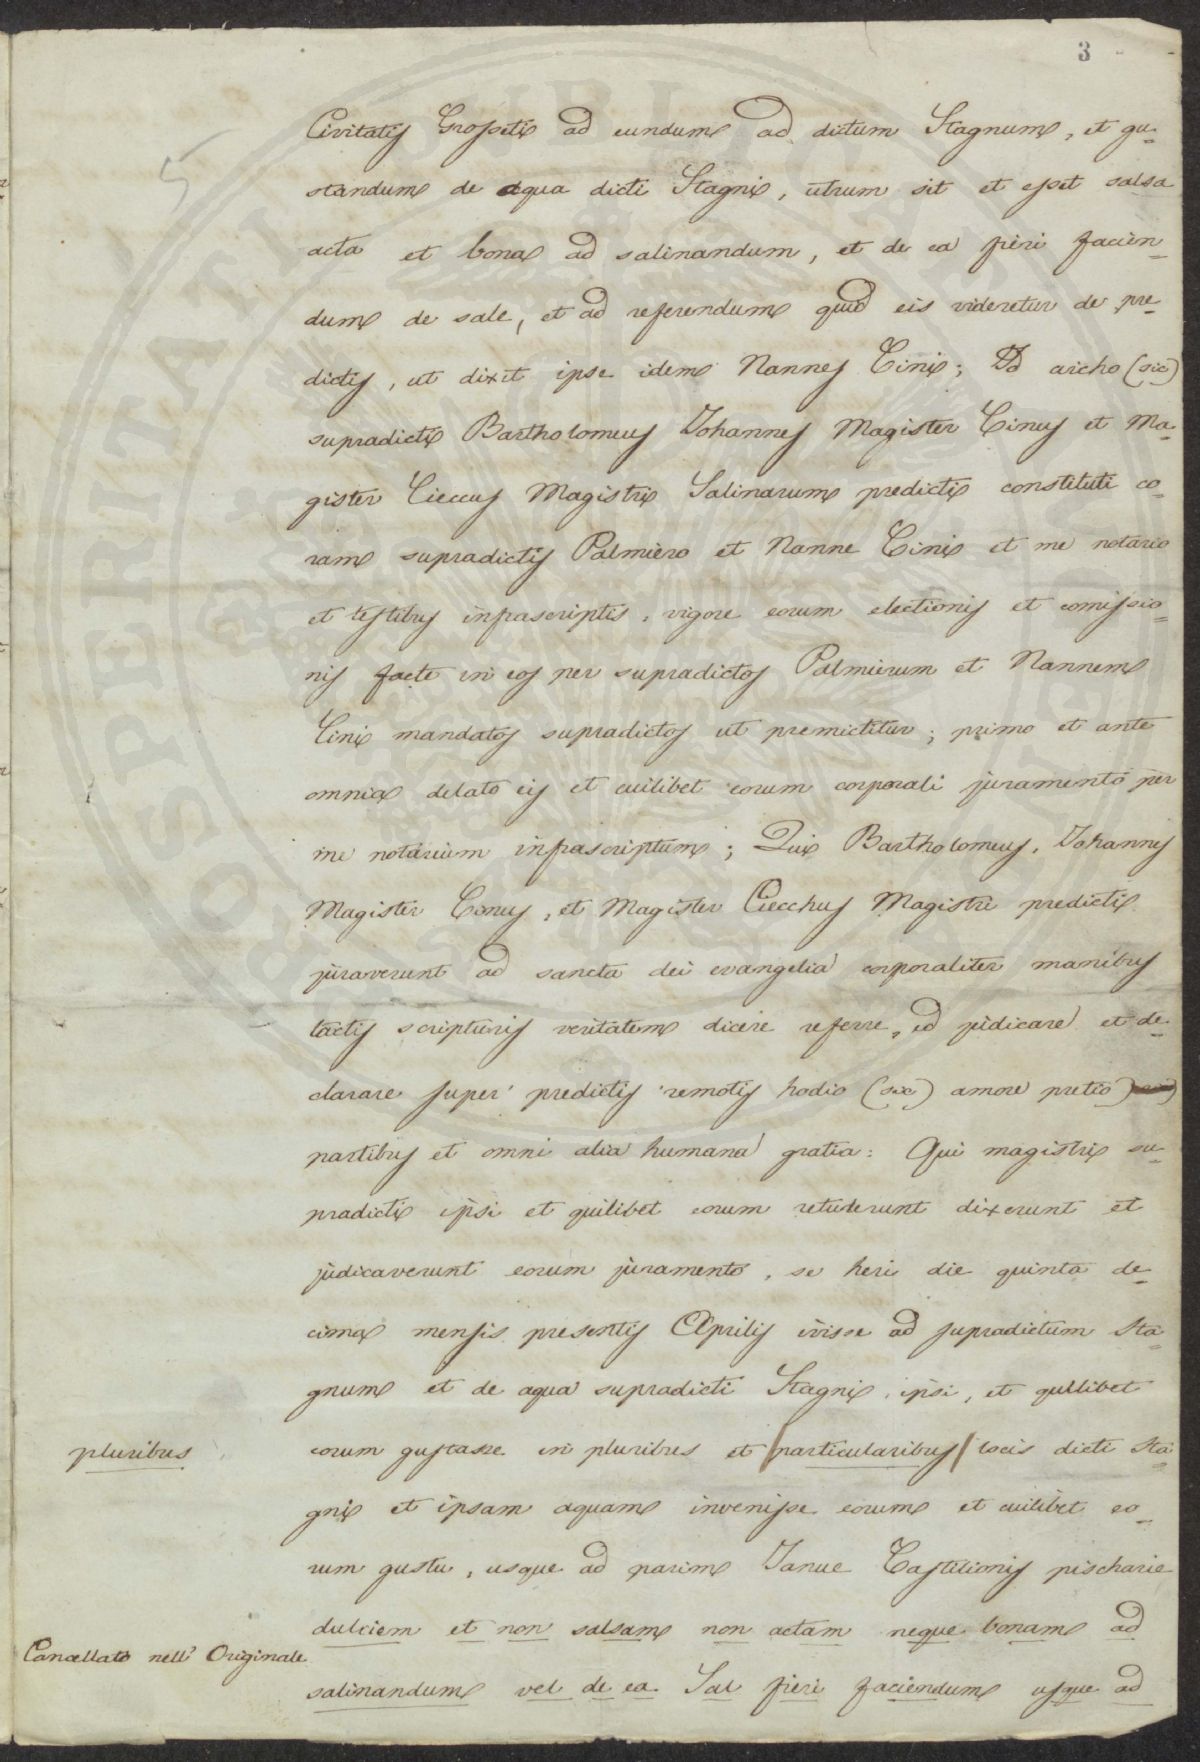 3
Civitatis Grosseti ad eundum ad dictum Stagnum, et gu-
standum de aqua dicti Stagni, utrum sit et esset salsa
acta et bona ad salinandum, et de ea fieri facien-
dum de sale, et ad referendum quid eis videretur de pre-
dictis, ut dixit ipse idem Nannes Cini; Id aicho (sic)
supradicti Bartholomeus Johannes Magister Cinus et Ma-
gister Cieccus Magistri Salinarum predicti constituti co-
ram supradictis Palmiero et Nanne Cini et me notario
et testibus infrascriptis, vigore eorum electionis et comissio-
nis facte in eos per supradictos Palmierum et Nannem
Cini mandatos supradictos ut premictitur; primo et ante
omnia delato eis et cuilibet eorum corporali juramento per
me notarium infrascriptum; Qui Bartholomeus, Johannis
Magister Cinus, et Magister Ciecchus Magistri predicti
juraverunt ad sancta dei evangelia corporaliter manibus
tactis scripturis veritatem dicere referre, ed judicare et de-
clarare super predictis remotis hodio (sic) amore pretio)
partibus et omni alia humana gratia: Qui magistri su-
pradicti ipsi et quilibet eorum retulerunt dixerunt et
judicaverunt eorum juramento, se heri die quinta de-
cima mensis presentis Aprilis ivisse ad supradictum Sta-
gnum et de aqua supradicti Stagni, ipsi, et quilibet
pluribus
eorum gustasse in pluribus et /particularibus/ locis dicti Sta-
gni et ipsam aquam invenisse eorum et cuilibet eo-
rum gustu, usque ad parim Janue Castilionis pischarie
dulciem et non salsam non actam neque bonam ad
Cancellato nell' Originale
salinandum vel de ea Sal fieri faciendum usque ad